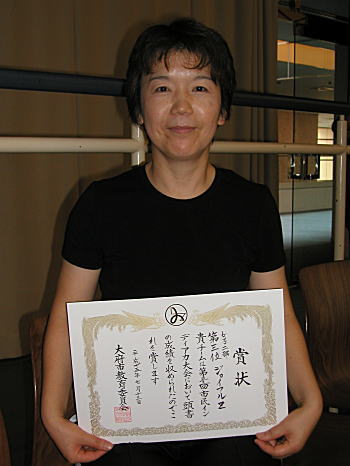 賞状
レディース二部
第三位 ジョイフル Z
貴チームは第4回市民イン
ディアカ大会において頭書
の成績を収められたのでこ
れを賞します
平成十五年七月十三日
大府市教育委員会